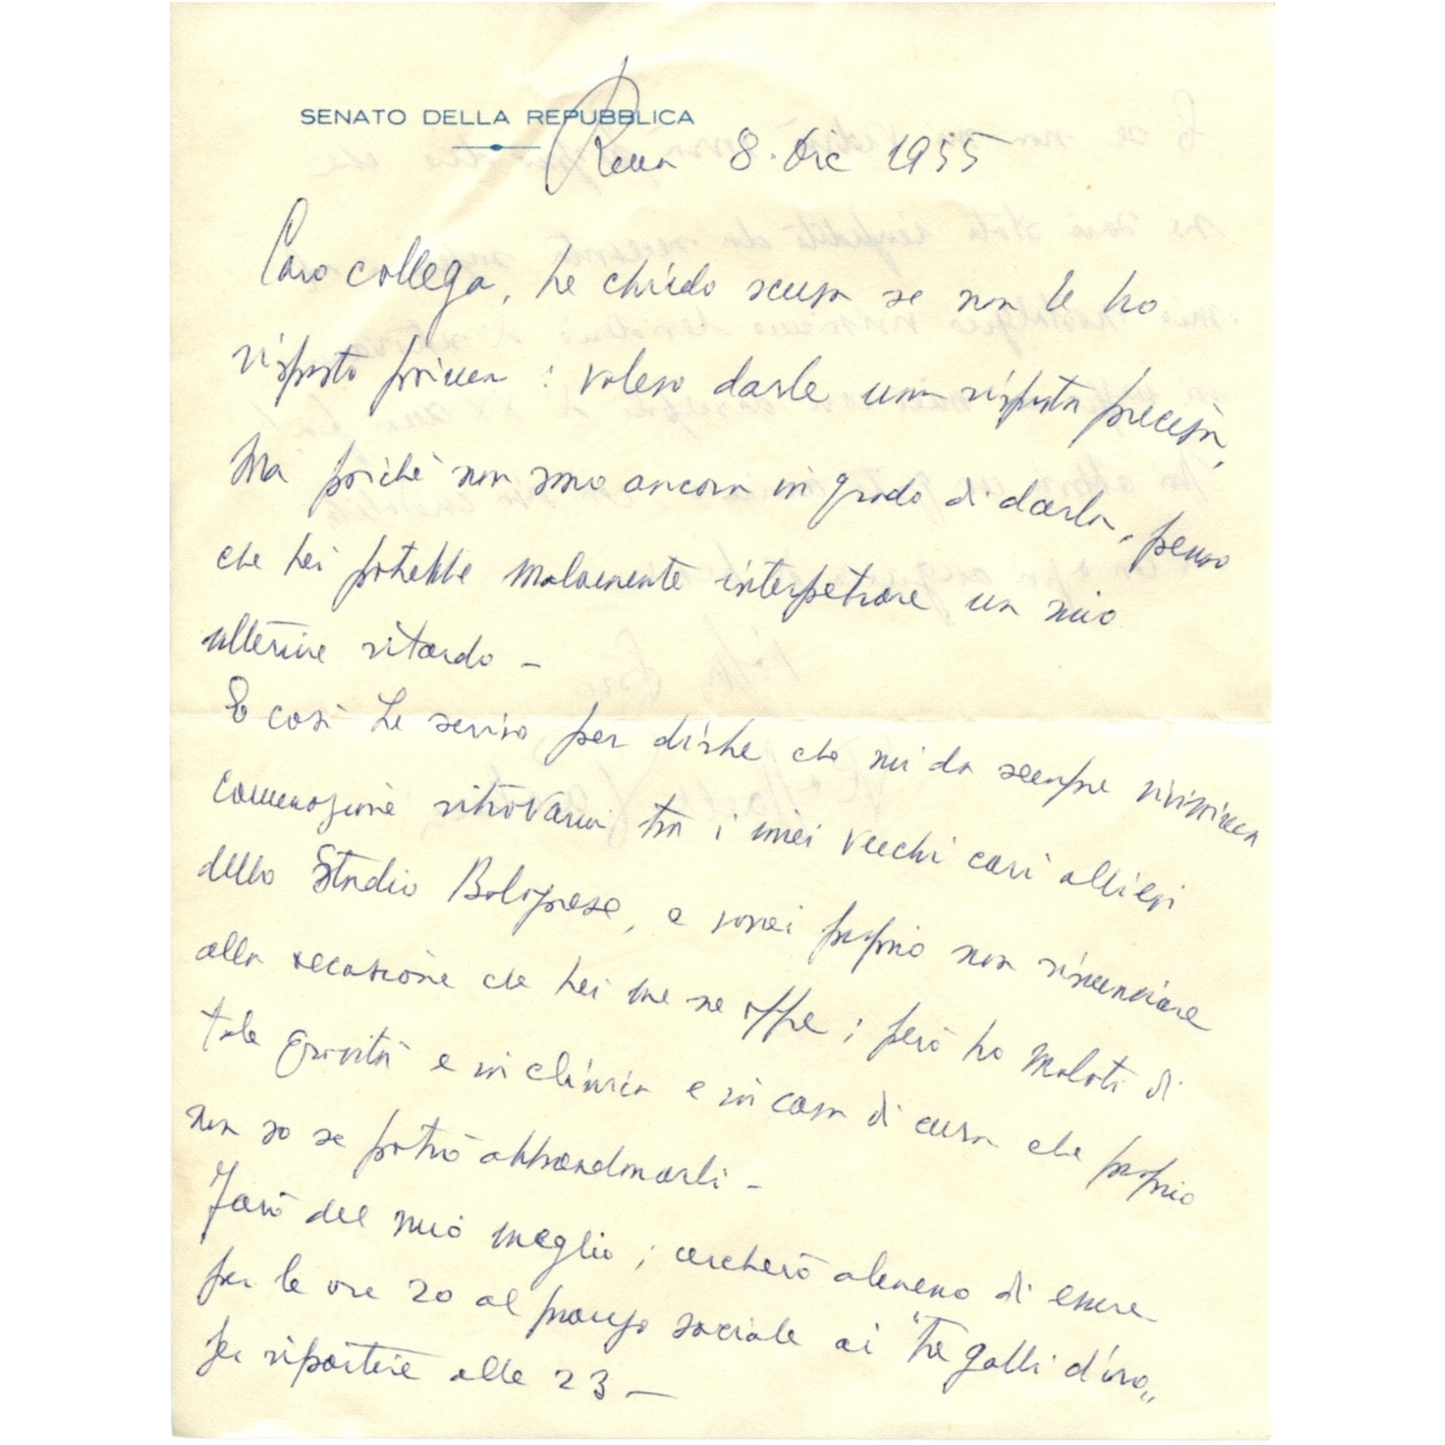 SENATO DELLA REPUBBLICA
Roma 8. Dic 1955
Caro collega, Le chiedo scusa se non Le ho
risposto prima : volevo darle una risposta precisa,
Ma poichè non sono ancora in grado di darla, penso
che Lei potrebbe malamente interpetrare un mio
ulteriore ritardo –
E così Le scrivo per dirLe che mi da sempre vivissima
commozione ritrovarmi tra i miei vecchi cari allievi
dello Studio Bolognese, e vorrei proprio non rinunciare
alla occasione che Lei me ne offre ; però ho malati di
tale gravità e in clinica e in casa di cura che proprio
non so se potrò abbandonarli –
Farò del mio meglio ; cercherò almeno di essere
per le ore 20 al pranzo sociale ai "tre galli d'oro"
per ripartire alle 23 –